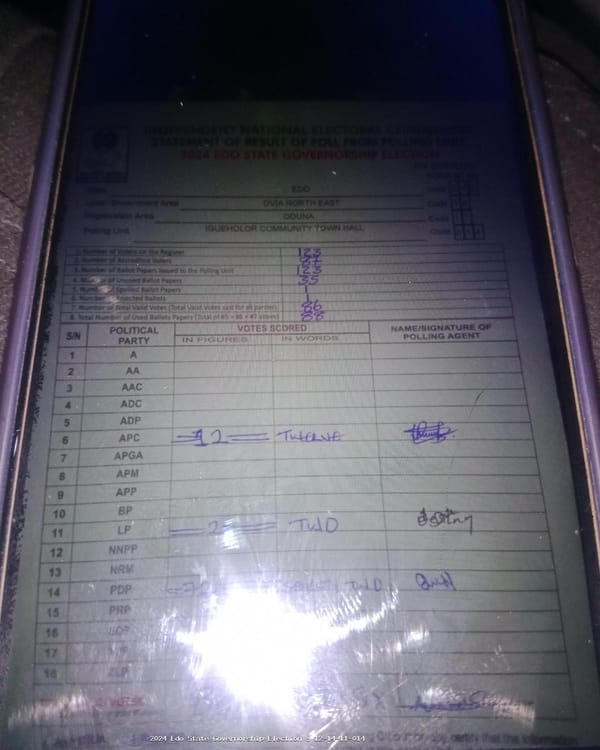 INDEPENDENT NATIONAL ELECTORAL COMMISSION
STATEMENT OF RESULT OF POLL FROM POLLING UNIT
2024 EDO STATE GOVERNORSHIP ELECTION
State EDO Code
Local Government Area OVIA NORTH EAST Code
Registration Area ODUNA Code
Polling Unit IGUEHOLOR COMMUNITY TOWN HALL Code
1. Number of Voters on the Register 123
2. Number of Accredited Voters 87
3. Number of Ballot Papers Issued to the Polling Unit 123
4. Number of Unused Ballot Papers 35
5. Number of Spoiled Ballot Papers 1
6. Number of Rejected Ballots 1
7. Number of Total Valid Votes (Total Valid Votes cast for all parties) 86
8. Total Number of Used Ballots Papers (Total of #5 + #6 + #7 above) 88
S/N POLITICAL PARTY VOTES SCORED NAME/SIGNATURE OF POLLING AGENT
IN FIGURES IN WORDS
1 A
2 AA
3 AAC
4 ADC
5 ADP
6 APC 12 TWELVE
7 APGA
8 APM
9 APP
10 BP
11 LP 2 TWO
12 NNPP
13 NRM
14 PDP TWO
15 PRP
16
17
18 ZLP
2024 Edo State Governorship Election - 12-14-11-014
certify that the information